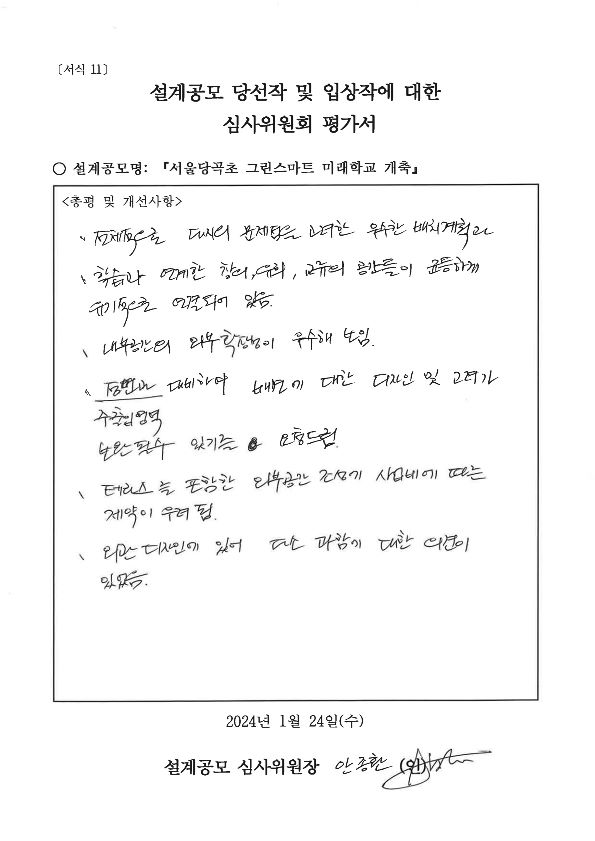 〔서식 11〕
설계공모 당선작 및 입상작에 대한
심사위원회 평가서
○ 설계공모명: 『서울당곡초 그린스마트 미래학교 개축』
<총평 및 개선사항>
、 전체적으로 대지의 문제점을 고려한 우수한 배치계획과
、 학습과 연계한 창의, 유희, 교류의 공간들이 균등하게
유기적으로 연결되어 있음.
、 내부공간의 외부 확장성이 우수해 보임.
、 정면과 대비하여 배면에 대한 디자인 및 고려가
주출입영역
보완필수 있기를 요청드림.
、 테라스를 포함한 외부공간 조성에 사업비에 따는
제약이 우려 됨.
、 외관 디자인에 있어 다소 과함에 대한 의견이
있었음.
2024년 1월 24일(수)
설계공모 심사위원장 안종환 (인)